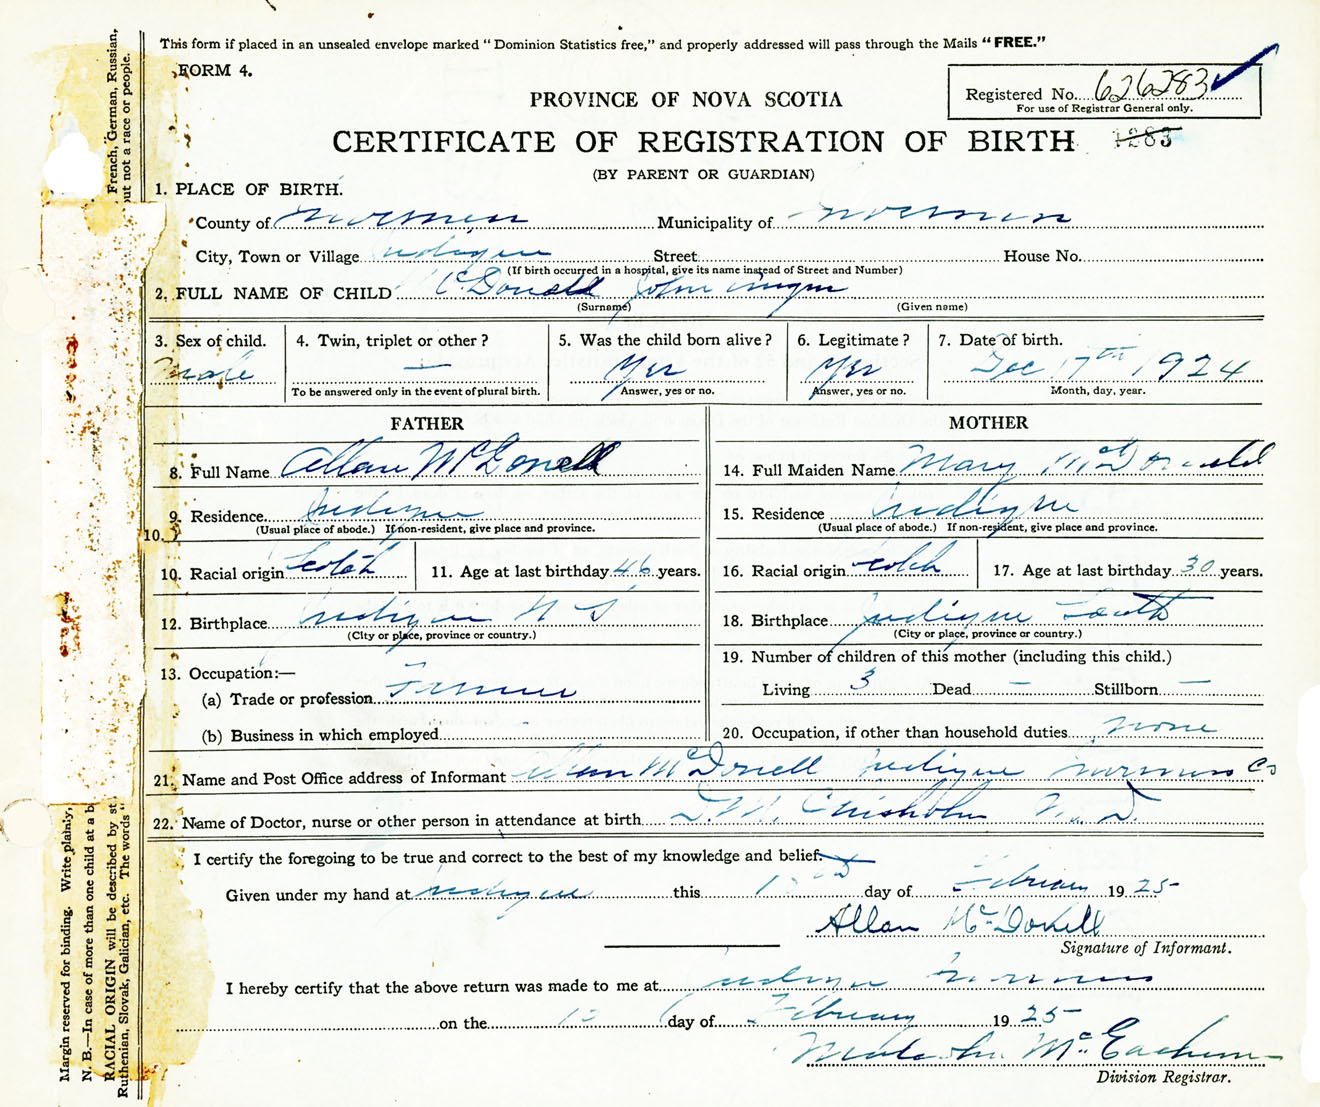 This form if placed in an unsealed envelope marked "Dominion Statistics free," and properly addressed will pass through the Mails "FREE."
FORM 4.
Registered No. 626283
For use of Registrar General only.
PROVINCE OF NOVA SCOTIA
CERTIFICATE OF REGISTRATION OF BIRTH 1283
(BY PARENT OR GUARDIAN)
1. PLACE OF BIRTH.
County of Inverness Municipality of Inverness
City, Town or Village Judique Street House No.
(If birth occurred in a hospital, give its name instead of Street and Number)
2. FULL NAME OF CHILD McDonald John Angus
(Surname) (Given name)
3. Sex of child. 4. Twin, triplet or other? 5. Was the child born alive? 6. Legitimate? 7. Date of birth.
Male — Yes Yes Dec 17th 1924
To be answered only in the event of plural birth. Answer, yes or no. Answer, yes or no. Month, day, year.
FATHER MOTHER
8. Full Name Allan McDonell 14. Full Maiden Name Mary McDonald
9. Residence Judique 15. Residence Judique
(Usual place of abode.) If non-resident, give place and province. (Usual place of abode.) If non-resident, give place and province.
10.
10. Racial origin Scotch 11. Age at last birthday 46 years. 16. Racial origin Scotch 17. Age at last birthday 30 years.
12. Birthplace Judique N S 18. Birthplace Judique South
(City or place, province or country.) (City or place, province or country.)
13. Occupation:— 19. Number of children of this mother (including this child.)
(a) Trade or profession Farmer Living 3 Dead — Stillborn —
(b) Business in which employed 20. Occupation, if other than household duties none
21. Name and Post Office address of Informant Allan McDonell Judique Inverness Co
22. Name of Doctor, nurse or other person in attendance at birth Chisholm M. D.
I certify the foregoing to be true and correct to the best of my knowledge and belief.
Given under my hand at Judique this day of February 1925
Allan McDonell
Signature of Informant.
I hereby certify that the above return was made to me at Judique Inverness
on the day of February 1925
Malcolm McEachern
Division Registrar.
Margin reserved for binding. Write plainly,
N. B.—In case of more than one child at a b
RACIAL ORIGIN will be described by st
Ruthenian, Slovak, Galician, etc. The words "
French, German, Russian,
but not a race or people.